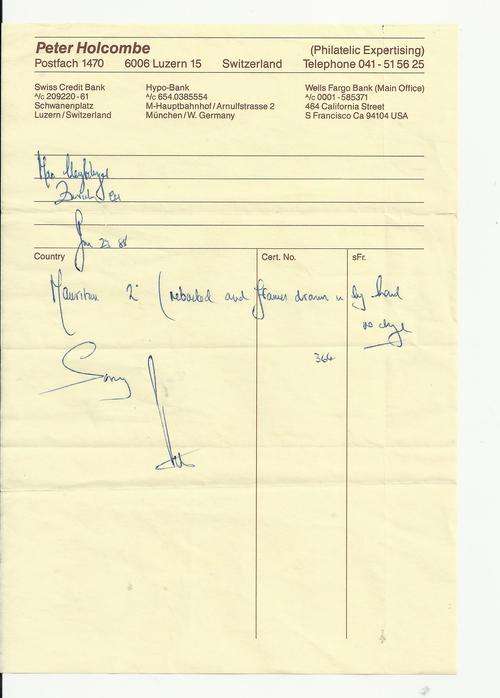 Peter Holcombe
(Philatelic Expertising)
Postfach 1470 6006 Luzern 15 Switzerland Telephone 041 - 51 56 25
Swiss Credit Bank
A/c 209220-61
Schwanenplatz
Luzern/Switzerland
Hypo-Bank
A/c 654.0385554
M-Hauptbahnhof/Arnulfstrasse 2
München/W. Germany
Wells Fargo Bank (Main Office)
A/c 0001-585371
464 California Street
S Francisco Ca 94104 USA
Zurich
Jan 23 88
Country Cert. No. sFr.
Mauritius 2d (rebacked and frames drawn in by hand
no chge
364
Sorry